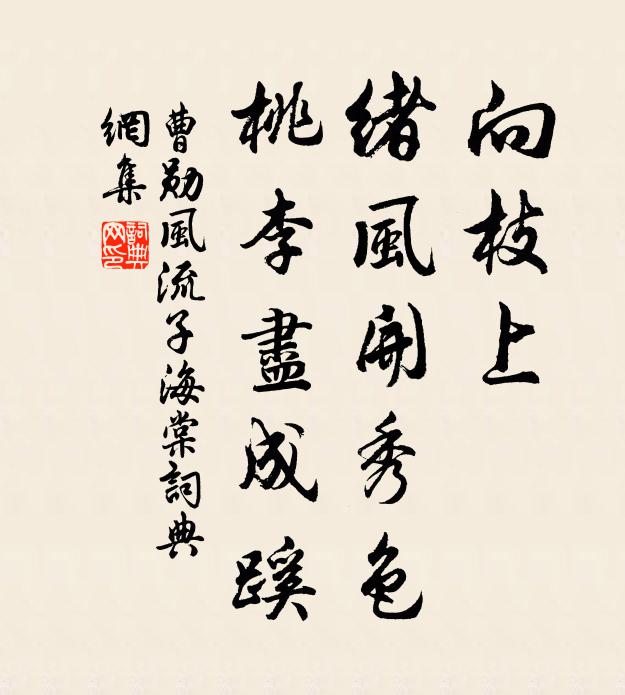 向枝上
緒風開秀色
桃李盡成蹊
曹勛風流子海棠詞典
網集
詞典網印